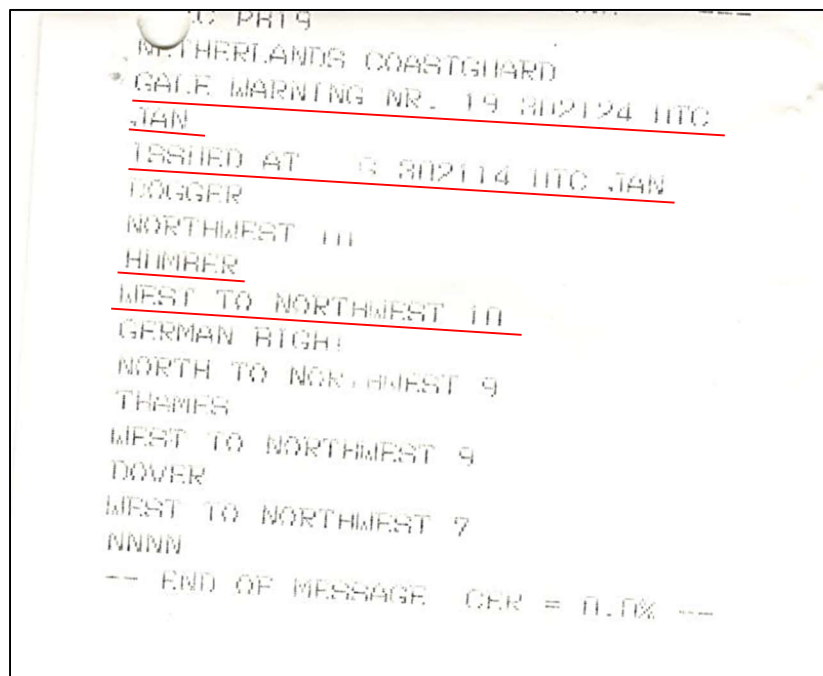 PB19
NETHERLANDS COASTGUARD
GALE WARNING NR. 19 302124 UTC
JAN
ISSUED AT 302114 UTC JAN
DOGGER
NORTHWEST 10
HUMBER
WEST TO NORTHWEST 10
GERMAN BIGHT
NORTH TO NORTHWEST 9
THAMES
WEST TO NORTHWEST 9
DOVER
WEST TO NORTHWEST 7
NNNN
-- END OF MESSAGE CER = 0.0% --